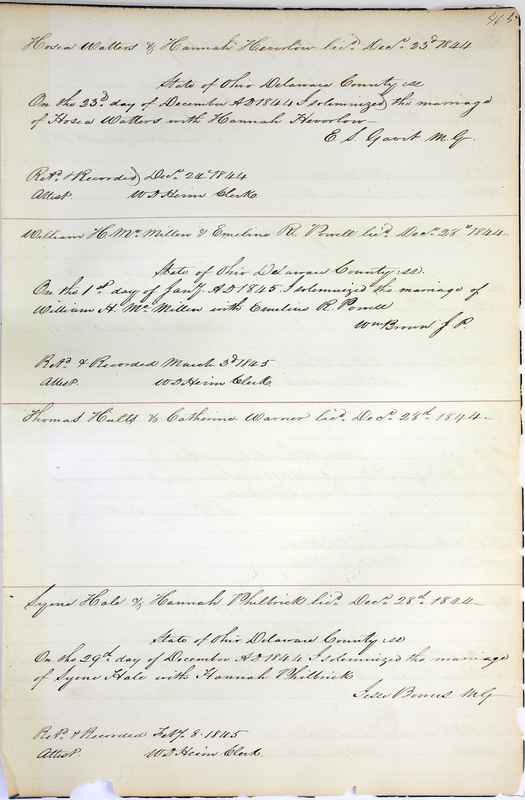 465
Hosea Watters & Hannah Heverlow licd. Decr. 23d 1844
State of Ohio Delaware County ss
On the 23d day of December AD 1844 I solemnized the marriage
of Hosea Watters with Hannah Heverlow
E. S. Gavit M. G.
Retd. & Recorded Decr. 24 1844
Attest. W D Heim Clerk.
William H. Mc Millen & Emeline R. Powell licd. Decr. 28th 1844
State of Ohio Delaware County ss.
On the 1st day of Jany. AD 1845 I solemnized the marriage of
William H. Mc Millen with Emeline R. Powell
Wm Brown J P.
Retd. & Recorded March 3d 1845
Attest. W D Heim Clerk
Thomas Hults & Catherine Warner licd. Decr. 28th. 1844
Syene Hale & Hannah Philbrick licd. Decr. 28th. 1844
State of Ohio Delaware County ss
On the 29th. day of December AD 1844 I solemnized the marriage
of Syene Hale with Hannah Philbrick
Jesse M G
Retd. & Recorded Feby. 8. 1845
Attest. W D Heim Clerk.